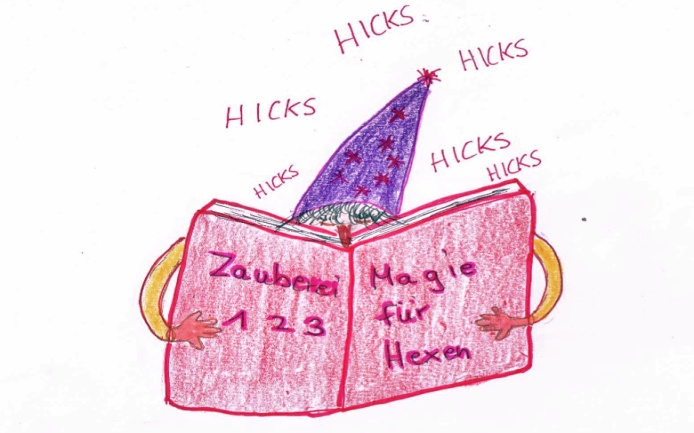 HICKS
HICKS
HICKS
HICKS
HICKS
HICKS
Zauberei
1 2 3
Magie
für
Hexen